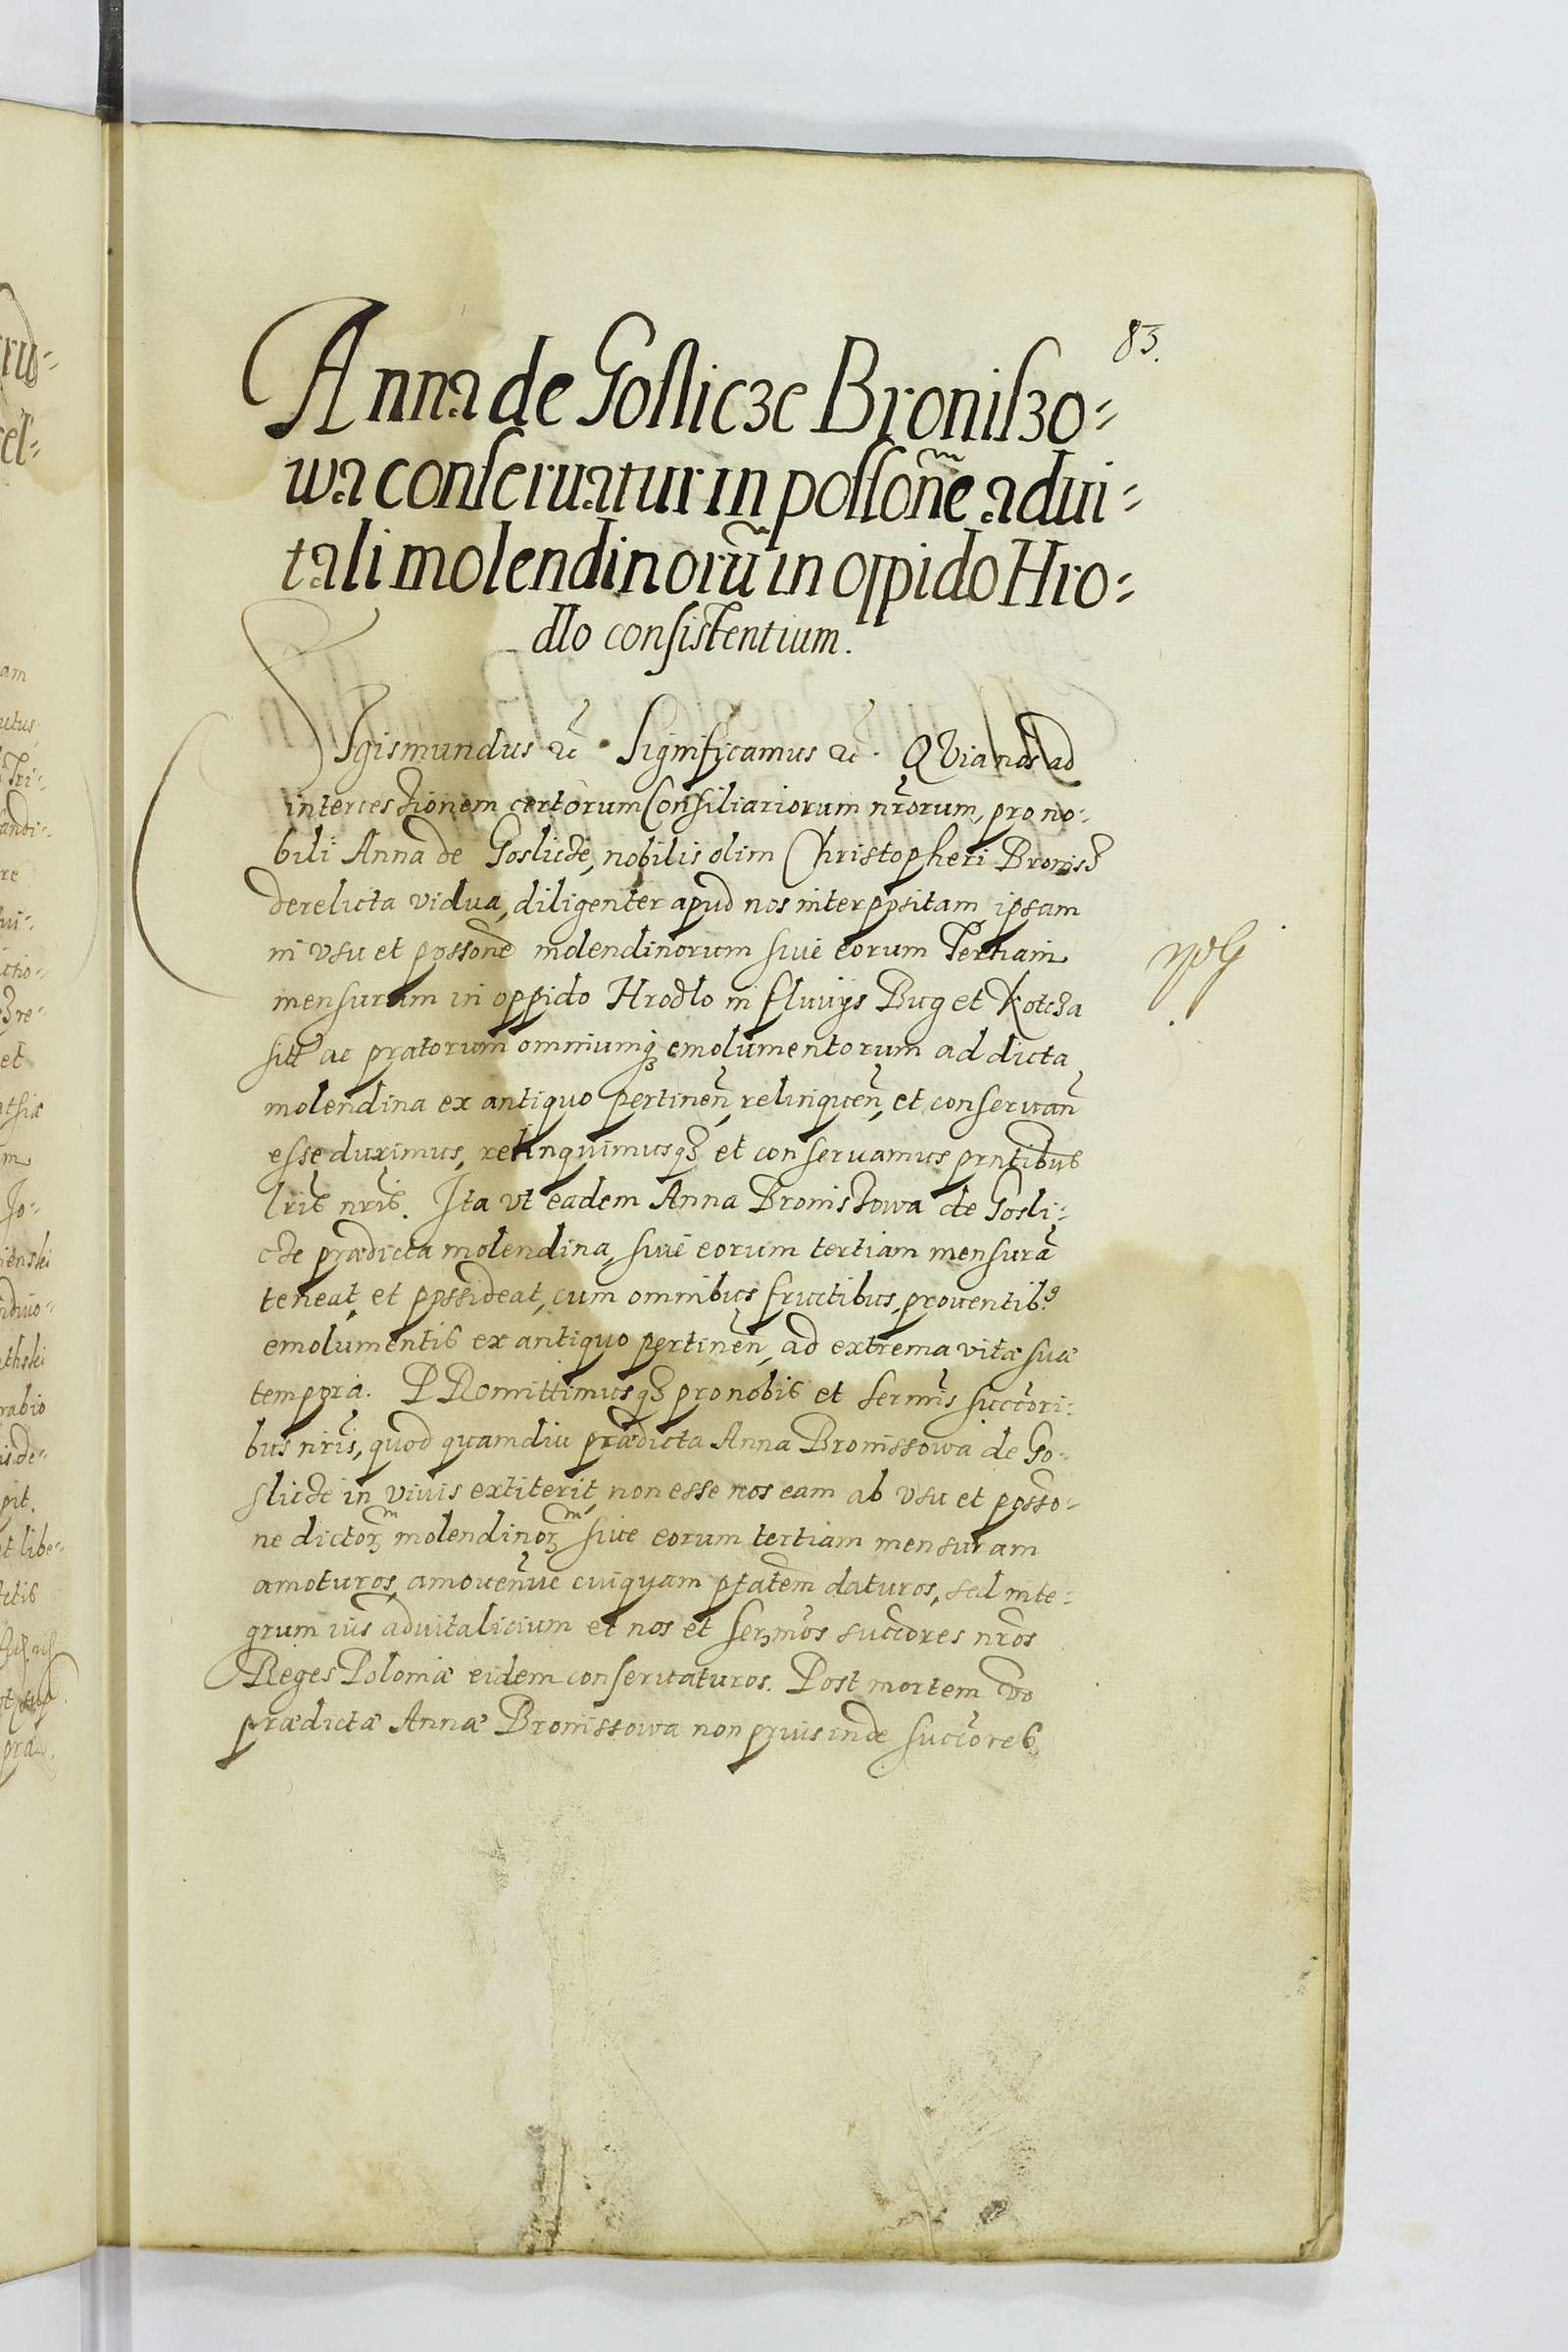 83.
Anna de Goslicze Broniszo=
wa conseruatur in possone adui=
tali molendinorū in oppido Hro=
dlo consistentium.
Sigismundus etc. Significamus etc. Quia nos ad
intercessionem certorum Consiliariorum nrorum, pro no=
bili Anna de Goslicze, nobilis olim Christopheri Bronisz
derelicta vidua, diligenter apud nos interpositam ipsam
in vsu et possone molendinorum siue eorum Tertiam
mensuram in oppido Hrodlo in fluuijs Bug et Kotcza
sitt ac pratorum omniumq3 emolumentorum ad dicta
molendina ex antiquo pertinen, relinquen, et conseruan
esse duximus, relinquimusq3 et conseruamus pntibus
lris nris. Ita vt eadem Anna Broniszowa de Gosli=
cze prædicta molendina, siue eorum tertiam mensurā
teneat, et possideat, cum omnibus fructibus, prouentib9
emolumentis ex antiquo pertinen, ad extrema vitæ suæ
tempora. PRomittimusq3 pro nobis et sermis succori=
bus nris, quod quamdiu prædicta Anna Bronissowa de Go=
slicze in viuis extiterit, non esse nos eam ab vsu et posso=
ne dictorm molendinorm siue eorum tertiam mensuram
amoturos, amouenve cuiquam ptatem daturos, sed inte=
grum ius aduitalicium et nos et sermos succores nros
Reges Poloniæ eidem conseruaturos. Post mortem vo
prædictæ Annæ Bronissowa non prius inde succores